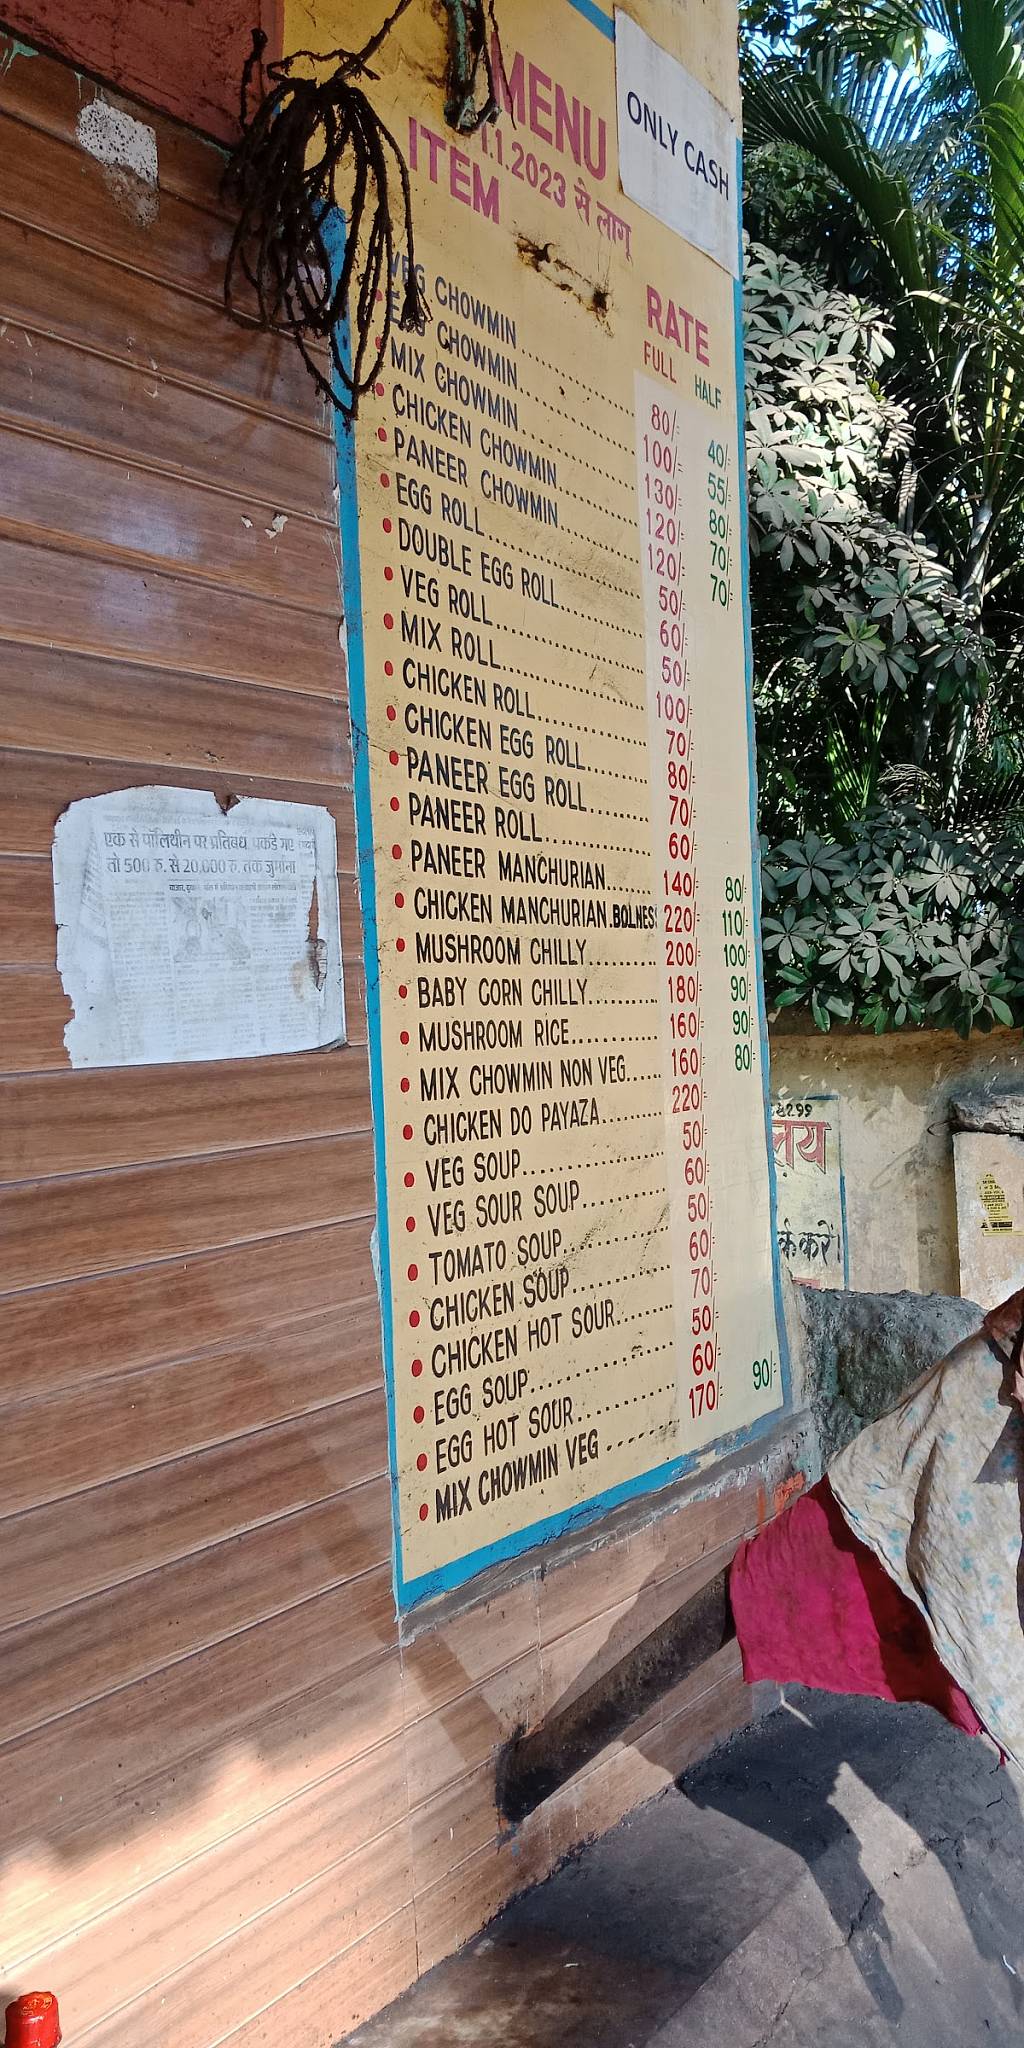 ONLY CASH
MENU
1.1.2023 से लागू
ITEM RATE
FULL HALF
VEG CHOWMIN 80/- 40/-
EGG CHOWMIN 100/- 55/-
MIX CHOWMIN 130/- 80/-
CHICKEN CHOWMIN 120/- 70/-
PANEER CHOWMIN 120/- 70/-
EGG ROLL 50/-
DOUBLE EGG ROLL 60/-
VEG ROLL 50/-
MIX ROLL 100/-
CHICKEN ROLL 70/-
CHICKEN EGG ROLL 80/-
PANEER EGG ROLL 70/-
PANEER ROLL 60/-
PANEER MANCHURIAN 140/- 80/-
CHICKEN MANCHURIAN.BOLNES 220/- 110/-
MUSHROOM CHILLY 200/- 100/-
BABY CORN CHILLY 180/- 90/-
MUSHROOM RICE 160/- 90/-
MIX CHOWMIN NON VEG 160/- 80/-
CHICKEN DO PAYAZA 220/-
VEG SOUP 50/-
VEG SOUR SOUP 60/-
TOMATO SOUP 50/-
CHICKEN SOUP 60/-
CHICKEN HOT SOUR 70/-
EGG SOUP 50/-
EGG HOT SOUR 60/-
MIX CHOWMIN VEG 170/- 90/-
एक से पॉलिथीन पर प्रतिबंध, पकड़े गए
तो 500 रु. से 20,000 रु. तक जुर्माना
8299
करें।